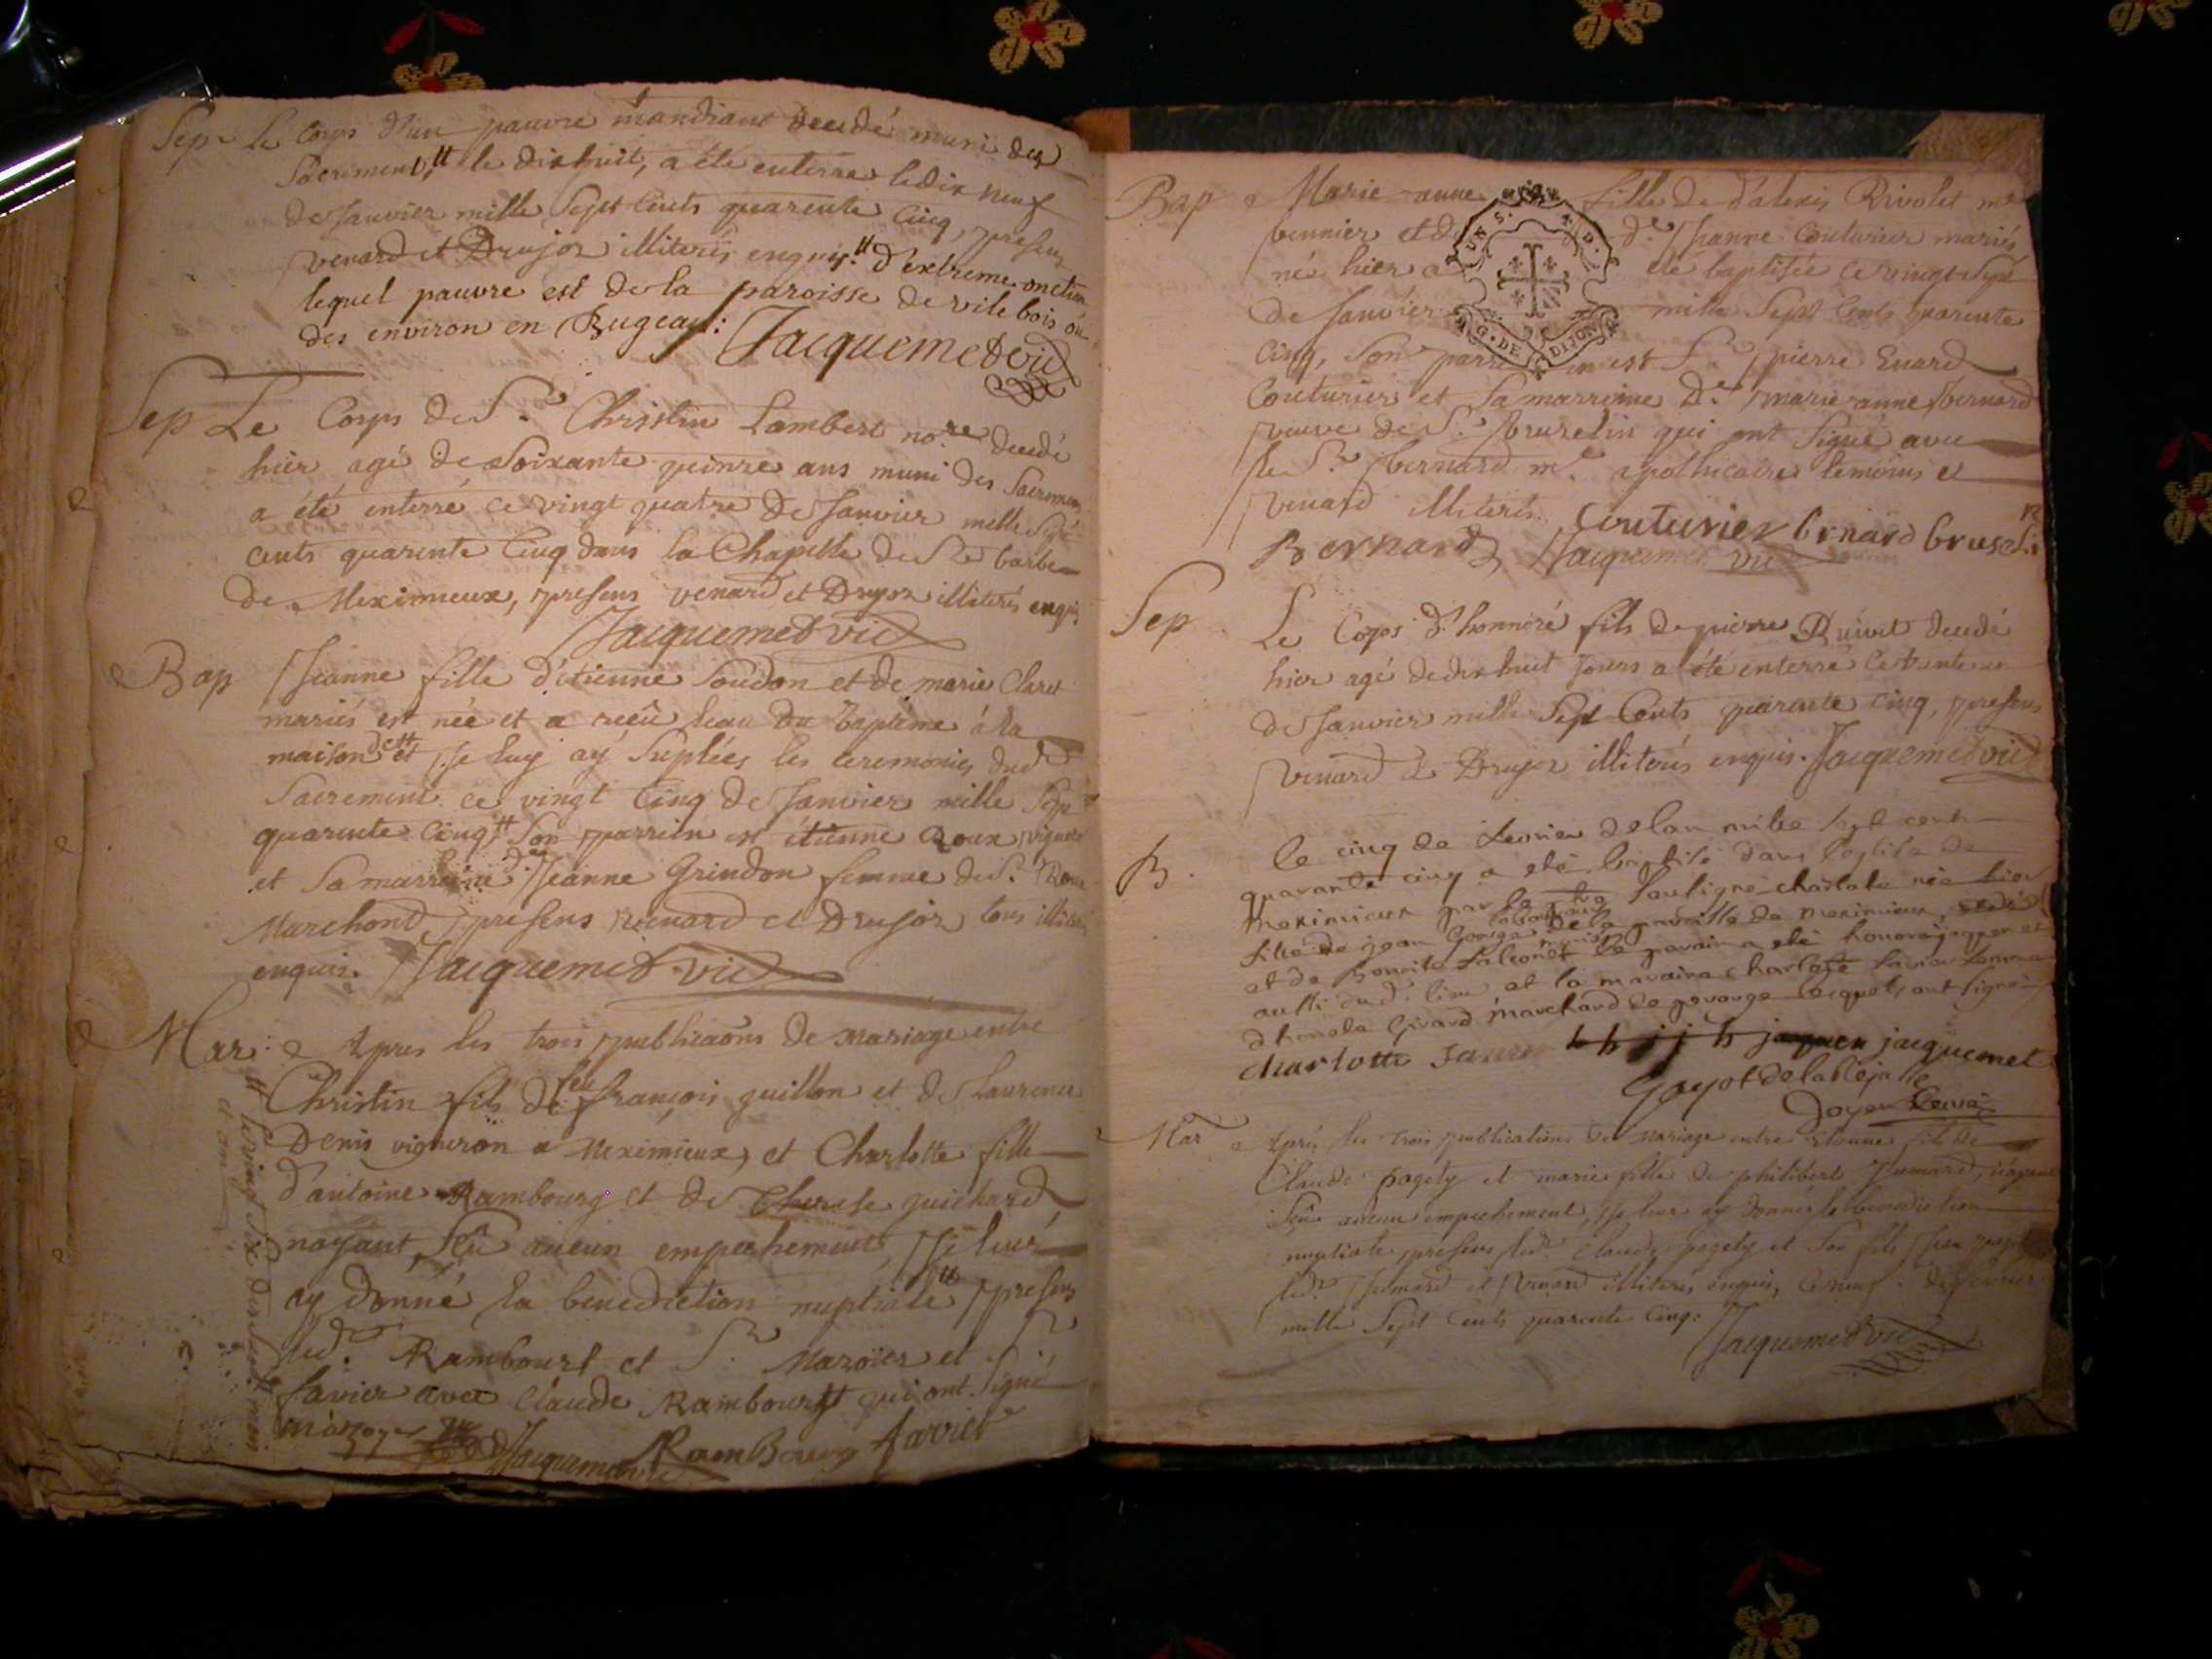 Sep Le Corps d'un pauvre mandiant decedé muni des
Sacremens le dixhuit, a été enterré le dix neuf
de Janvier mille Sept Cents quarente Cinq, presens
venard et Drujon illiterés enquis d'extreme onction
lequel pauvre est de la paroisse de vilebois ou
des environ en Bugeay: Jacquemet vic
Sep Le Corps de Sr Christin Lambert no.re decedé
hier agé de Soixante quinze ans muni des Sacremens
a été enterré ce vingt quatre de Janvier mille Sept
cents quarente Cinq dans la Chapelle de Ste barbe
de Meximieux, presens venard et Drujon illiterés enquis
Jacquemet vic
Bap Jeanne fille d'étienne Soudon et de marie Claret
mariés est née et a receû leau du baptême à la
maison et Je luy ay Suplées les ceremonies dud
Sacrement ce vingt Cinq de Janvier mille Sept
quarente Cinq Son parrein est étienne Roux vigneron
et Sa marreine de Jeanne Grindon femme de S. Roux
Marchond, presens venard et Drujon tous illiterés
enquis. Jacquemet vic
Mar: Apres les trois publicaôns de Mariage entre
Christin fils de feu françois guillon et de Laurence
Denis vigneron a Meximieux, et Charlotte fille
d'antoine Rambourg et de Therese guichard
nayant Sçû aucun empechement, Je leur
ay donné la benediction nuptiale presens
led. Rambourt et Sr Maroïer et Sr
favier avec Claude Rambourgt qui ont Signé
le vingt Six dud. mois
et an
maroyer Jacquemet vic RamBourg favier
Bap Marie anne fille de d'alexis Rivolet me
et de de Jeanne Couturier mariés
né hier a été baptisée ce vingt Sept
de Janvier mille Sept Cents quarente
UN S. D.
G. DE DIJON
Cinq, Son parrein est Sr pierre Enard
Couturier et Sa marreine De marie anne bernard
veuve de S. bruselin qui ont Signé avec
le Sr bernard me apothicaire temoins et
venard illiterés. Couturier brnard bruselin
Bernard Jacquemet vic
Sep Le Corps d'honnoré fils de pierre Ruivet decedé
hier agé de dix huit Jours a été enterré ce trente
de Janvier mille Sept Cents quarente Cinq, presens
venard & Drujon illiterés enquis. Jacquemet vic
B. le cinq de Fevrier de lan mille sept cent
quarante cinq a eté baptisé dans leglise de
meximieux par le ptre soussigné charlote née hier
fille de jean George de la parroisse de meximieux,
et de Benoite Falconet mariés le parain a eté honoré jaquemet
aussi dud. lieu et la maraine charlote favier femme
d'honoré Girard marchand de perouge lesquels ont signé
charlotte favier h jaquem jacquemet
Gayot de la Bejasse
Doyen Curé
Mar Aprés les trois publications de mariage entre étienne fils de
Claude pagety et marie fille de philibert Jumard, n'ayant
Sçû aucun empechement, Je leur ay donné la benediction
nuptiale, presens led. Claude pagety et Son fils Jean pagety
led. Jumard et venard illiterés enquis, ce neuf de fevrier
mille Sept Cents quarente Cinq. Jacquemet vic